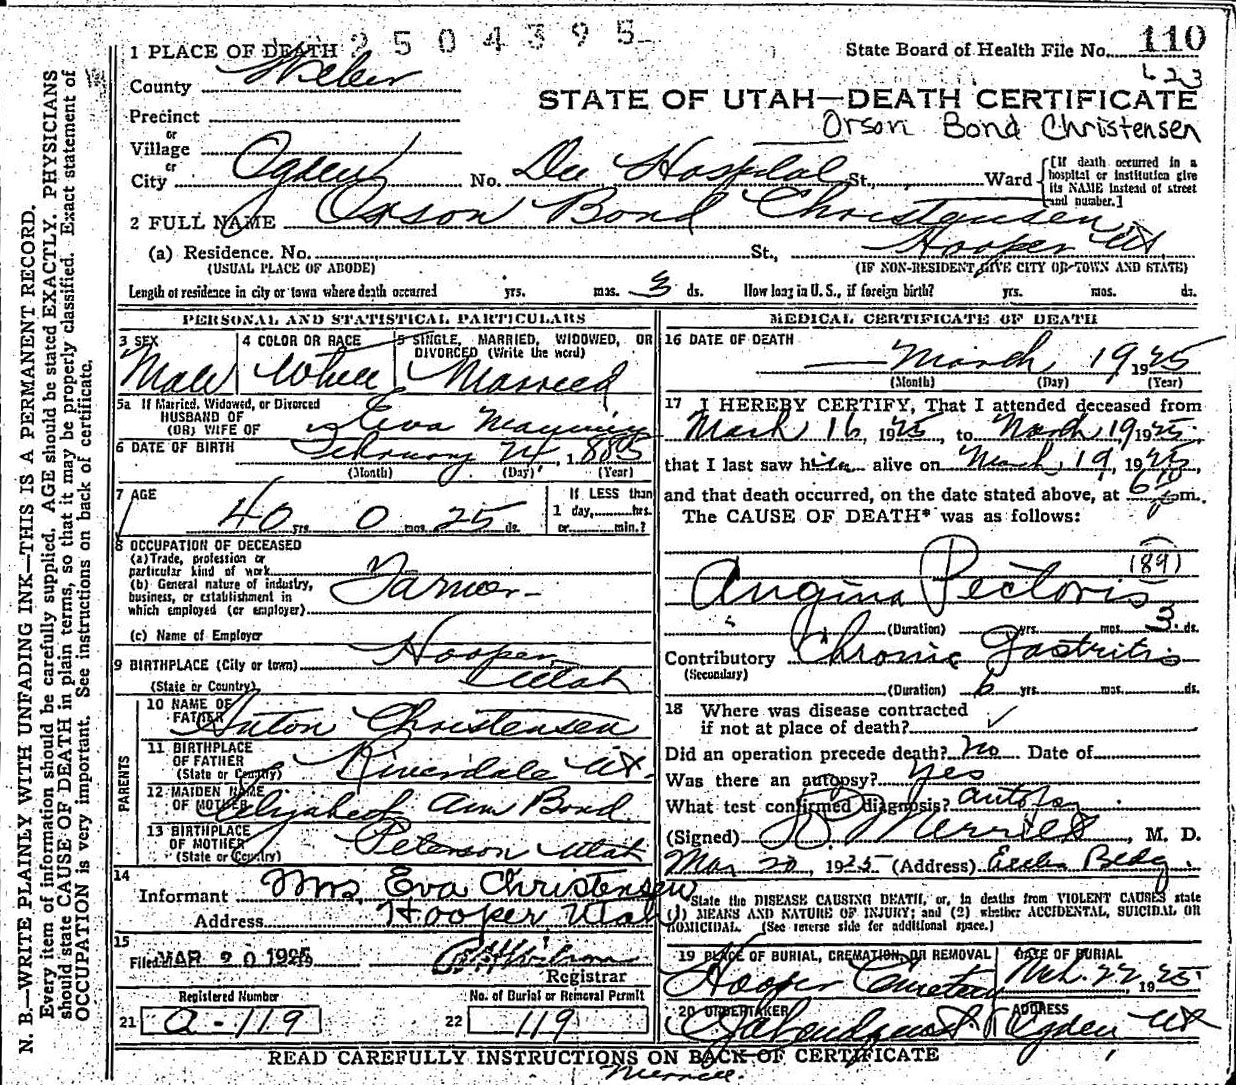 2504395
1 PLACE OF DEATH
State Board of Health File No. 110
623
County Weber
STATE OF UTAH—DEATH CERTIFICATE
Orson Bond Christensen
Precinct
or
Village
or
City Ogden No. Dee Hospital St., Ward
[If death occurred in a hospital or institution give its NAME instead of street and number.]
2 FULL NAME Orson Bond Christensen
(a) Residence. No. St., Hooper Ut.
(USUAL PLACE OF ABODE) (IF NON-RESIDENT GIVE CITY OR TOWN AND STATE)
Length of residence in city or town where death occurred yrs. mos. 3 ds. How long in U. S., if foreign birth? yrs. mos. ds.
PERSONAL AND STATISTICAL PARTICULARS
3 SEX Male
4 COLOR OR RACE White
5 SINGLE, MARRIED, WIDOWED, OR DIVORCED (Write the word) Married
5a If Married, Widowed, or Divorced
HUSBAND OF
(OR) WIFE OF Eva Manning
6 DATE OF BIRTH February 24, 1885
(Month) (Day) (Year)
7 AGE 40 yrs. 0 mos. 25 ds.
If LESS than
1 day, hrs.
or min.?
8 OCCUPATION OF DECEASED
(a) Trade, profession or
particular kind of work
(b) General nature of industry,
business, or establishment in
which employed (or employer) Farmer
(c) Name of Employer
9 BIRTHPLACE (City or town) Hooper
(State or Country) Utah
PARENTS
10 NAME OF FATHER Anton Christensen
11 BIRTHPLACE OF FATHER (State or Country) Riverdale Ut.
12 MAIDEN NAME OF MOTHER Elizabeth Ann Bond
13 BIRTHPLACE OF MOTHER (State or Country) Peterson Utah
14
Informant Mrs. Eva Christensen
Address Hooper Utah
15
Filed MAR 20 1925
Registrar
Registered Number
21 a-119
No. of Burial or Removal Permit
22 119
MEDICAL CERTIFICATE OF DEATH
16 DATE OF DEATH
March 19, 1925
(Month) (Day) (Year)
17 I HEREBY CERTIFY, That I attended deceased from
March 16, 1925, to March 19 1925,
that I last saw him alive on March 19, 1925,
and that death occurred, on the date stated above, at 6 10 p m.
The CAUSE OF DEATH* was as follows:
(89)
Angina Pectoris
(Duration) yrs. mos. 3 ds.
Contributory Chronic Gastritis
(Secondary)
(Duration) 6 yrs. mos. ds.
18 Where was disease contracted
if not at place of death? ✓
Did an operation precede death? No Date of
Was there an autopsy? yes
What test confirmed diagnosis? autopsy
(Signed) Merrill, M. D.
Mar 20, 1925 (Address) Eccles Bldg.
*State the DISEASE CAUSING DEATH, or, in deaths from VIOLENT CAUSES state
(1) MEANS AND NATURE OF INJURY; and (2) whether ACCIDENTAL, SUICIDAL OR
HOMICIDAL. (See reverse side for additional space.)
19 PLACE OF BURIAL, CREMATION, OR REMOVAL Hooper Cemetery
DATE OF BURIAL Mch. 22, 1925
20 UNDERTAKER
ADDRESS Ogden Ut
READ CAREFULLY INSTRUCTIONS ON BACK OF CERTIFICATE
Merrill.
N. B.—WRITE PLAINLY WITH UNFADING INK—THIS IS A PERMANENT RECORD.
Every item of information should be carefully supplied. AGE should be stated EXACTLY. PHYSICIANS
should state CAUSE OF DEATH in plain terms, so that it may be properly classified. Exact statement of
OCCUPATION is very important. See instructions on back of certificate.